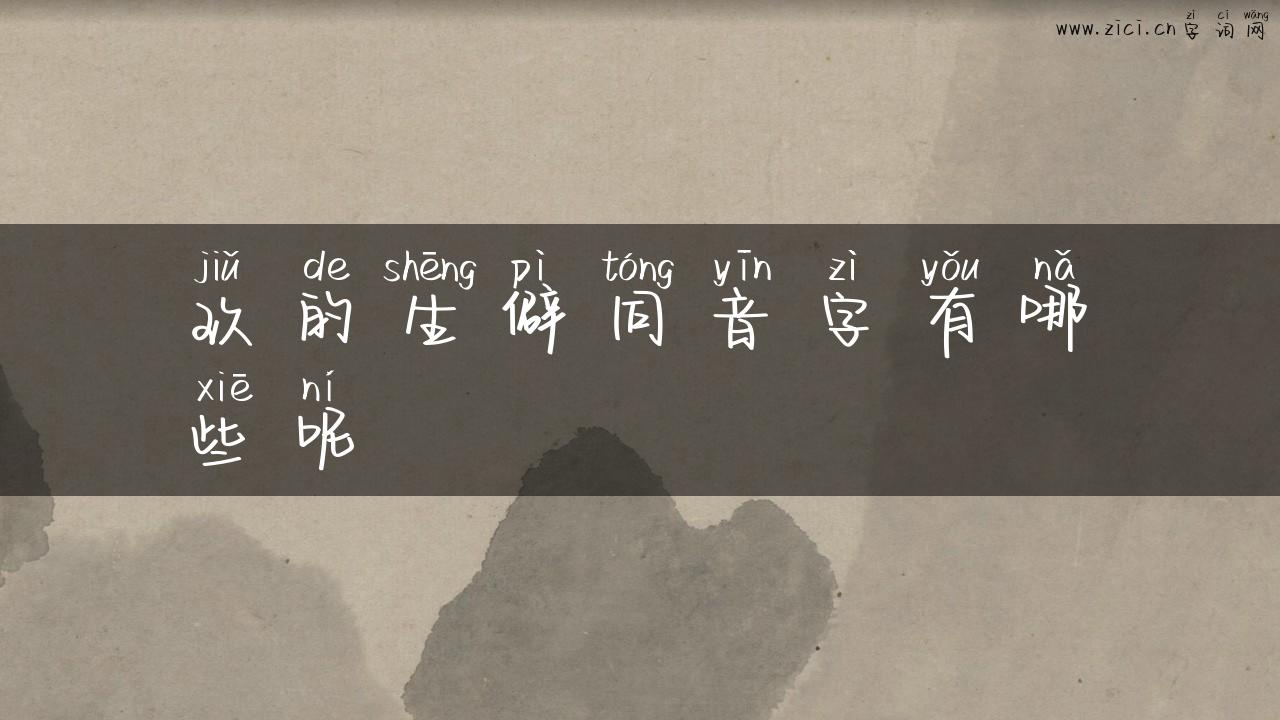 zì cí wǎng
www.zici.cn 字 词 网
jiǔ de shēng pì tóng yīn zì yǒu nǎ
玖 的 生 僻 同 音 字 有 哪
xiē ní
些 呢